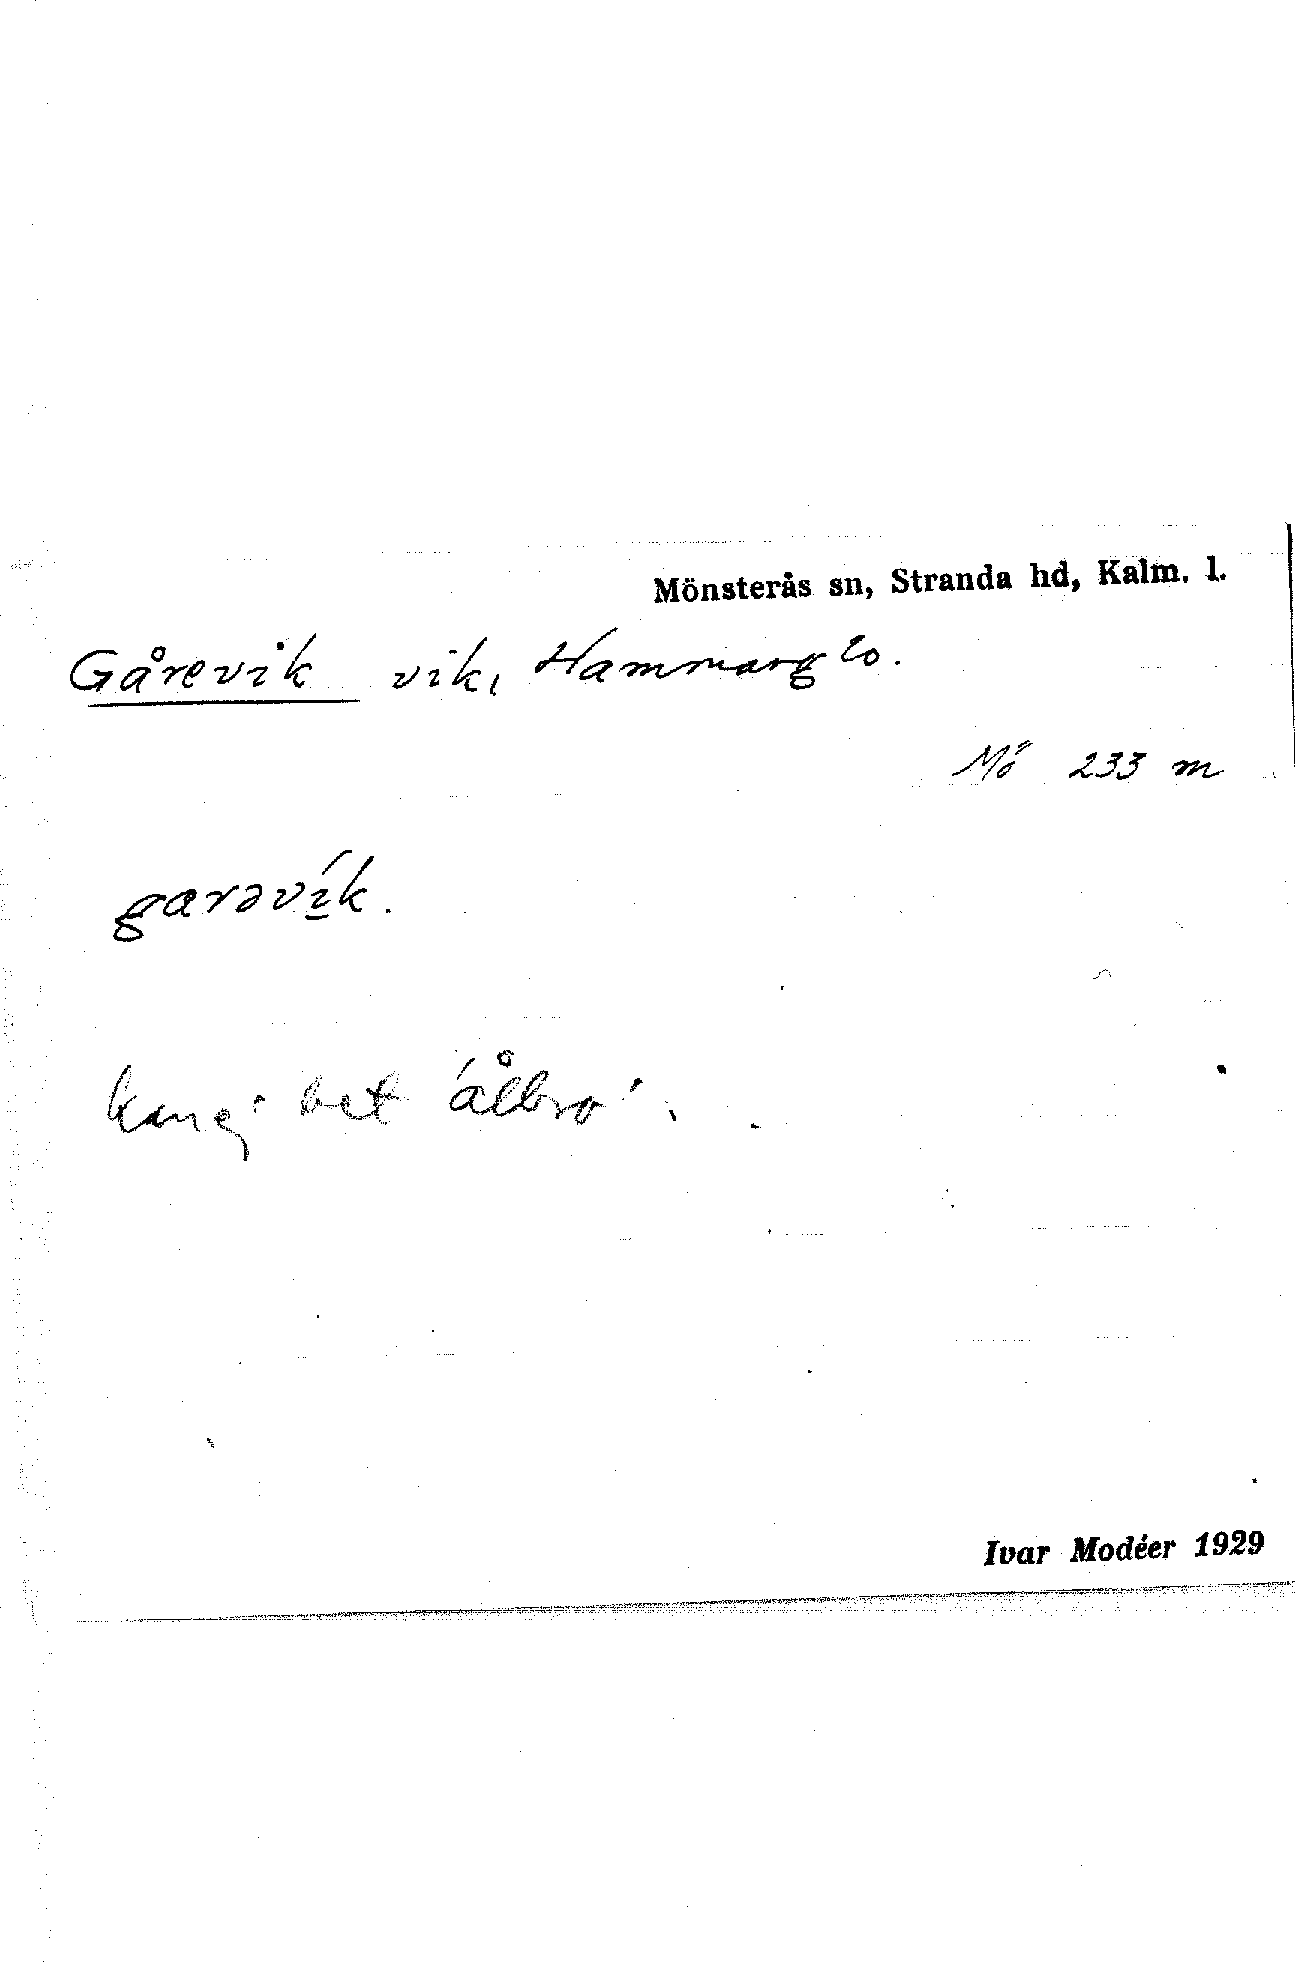 Mönsterås sn, Stranda hd, Kalm. l.
Gårevik vik, Hammarglo.
Mö 233 m
garəvík.
kanej bet 'ålbro'.
Ivar Modéer 1929